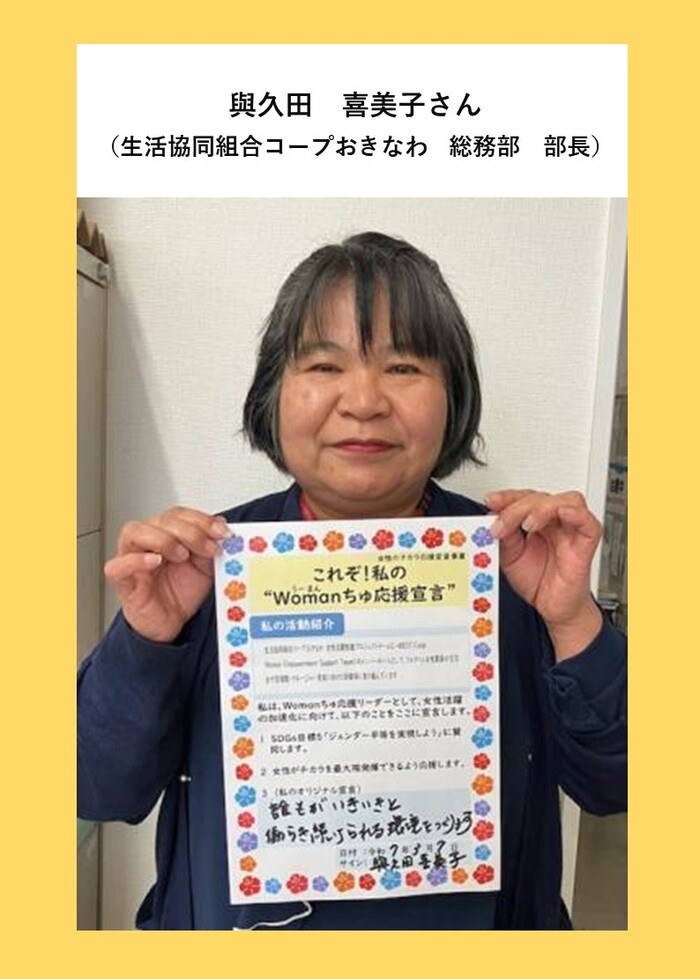 與久田　喜美子さん
（生活協同組合コープおきなわ　総務部　部長）
女性のチカラ応援宣言事業
これぞ！私の
うーまん
“Womanちゅ応援宣言”
私の活動紹介
私は、Womanちゅ応援リーダーとして、女性活躍
の加速化に向けて、以下のことをここに宣言します。
1 SDGs目標5「ジェンダー平等を実現しよう」に賛
同します。
2 女性がチカラを最大限発揮できるよう応援します。
3 （私のオリジナル宣言）
誰もがいきいきと
働らき続けられる環境をつくります
日付：令和7年3月7日
サイン：與久田喜美子